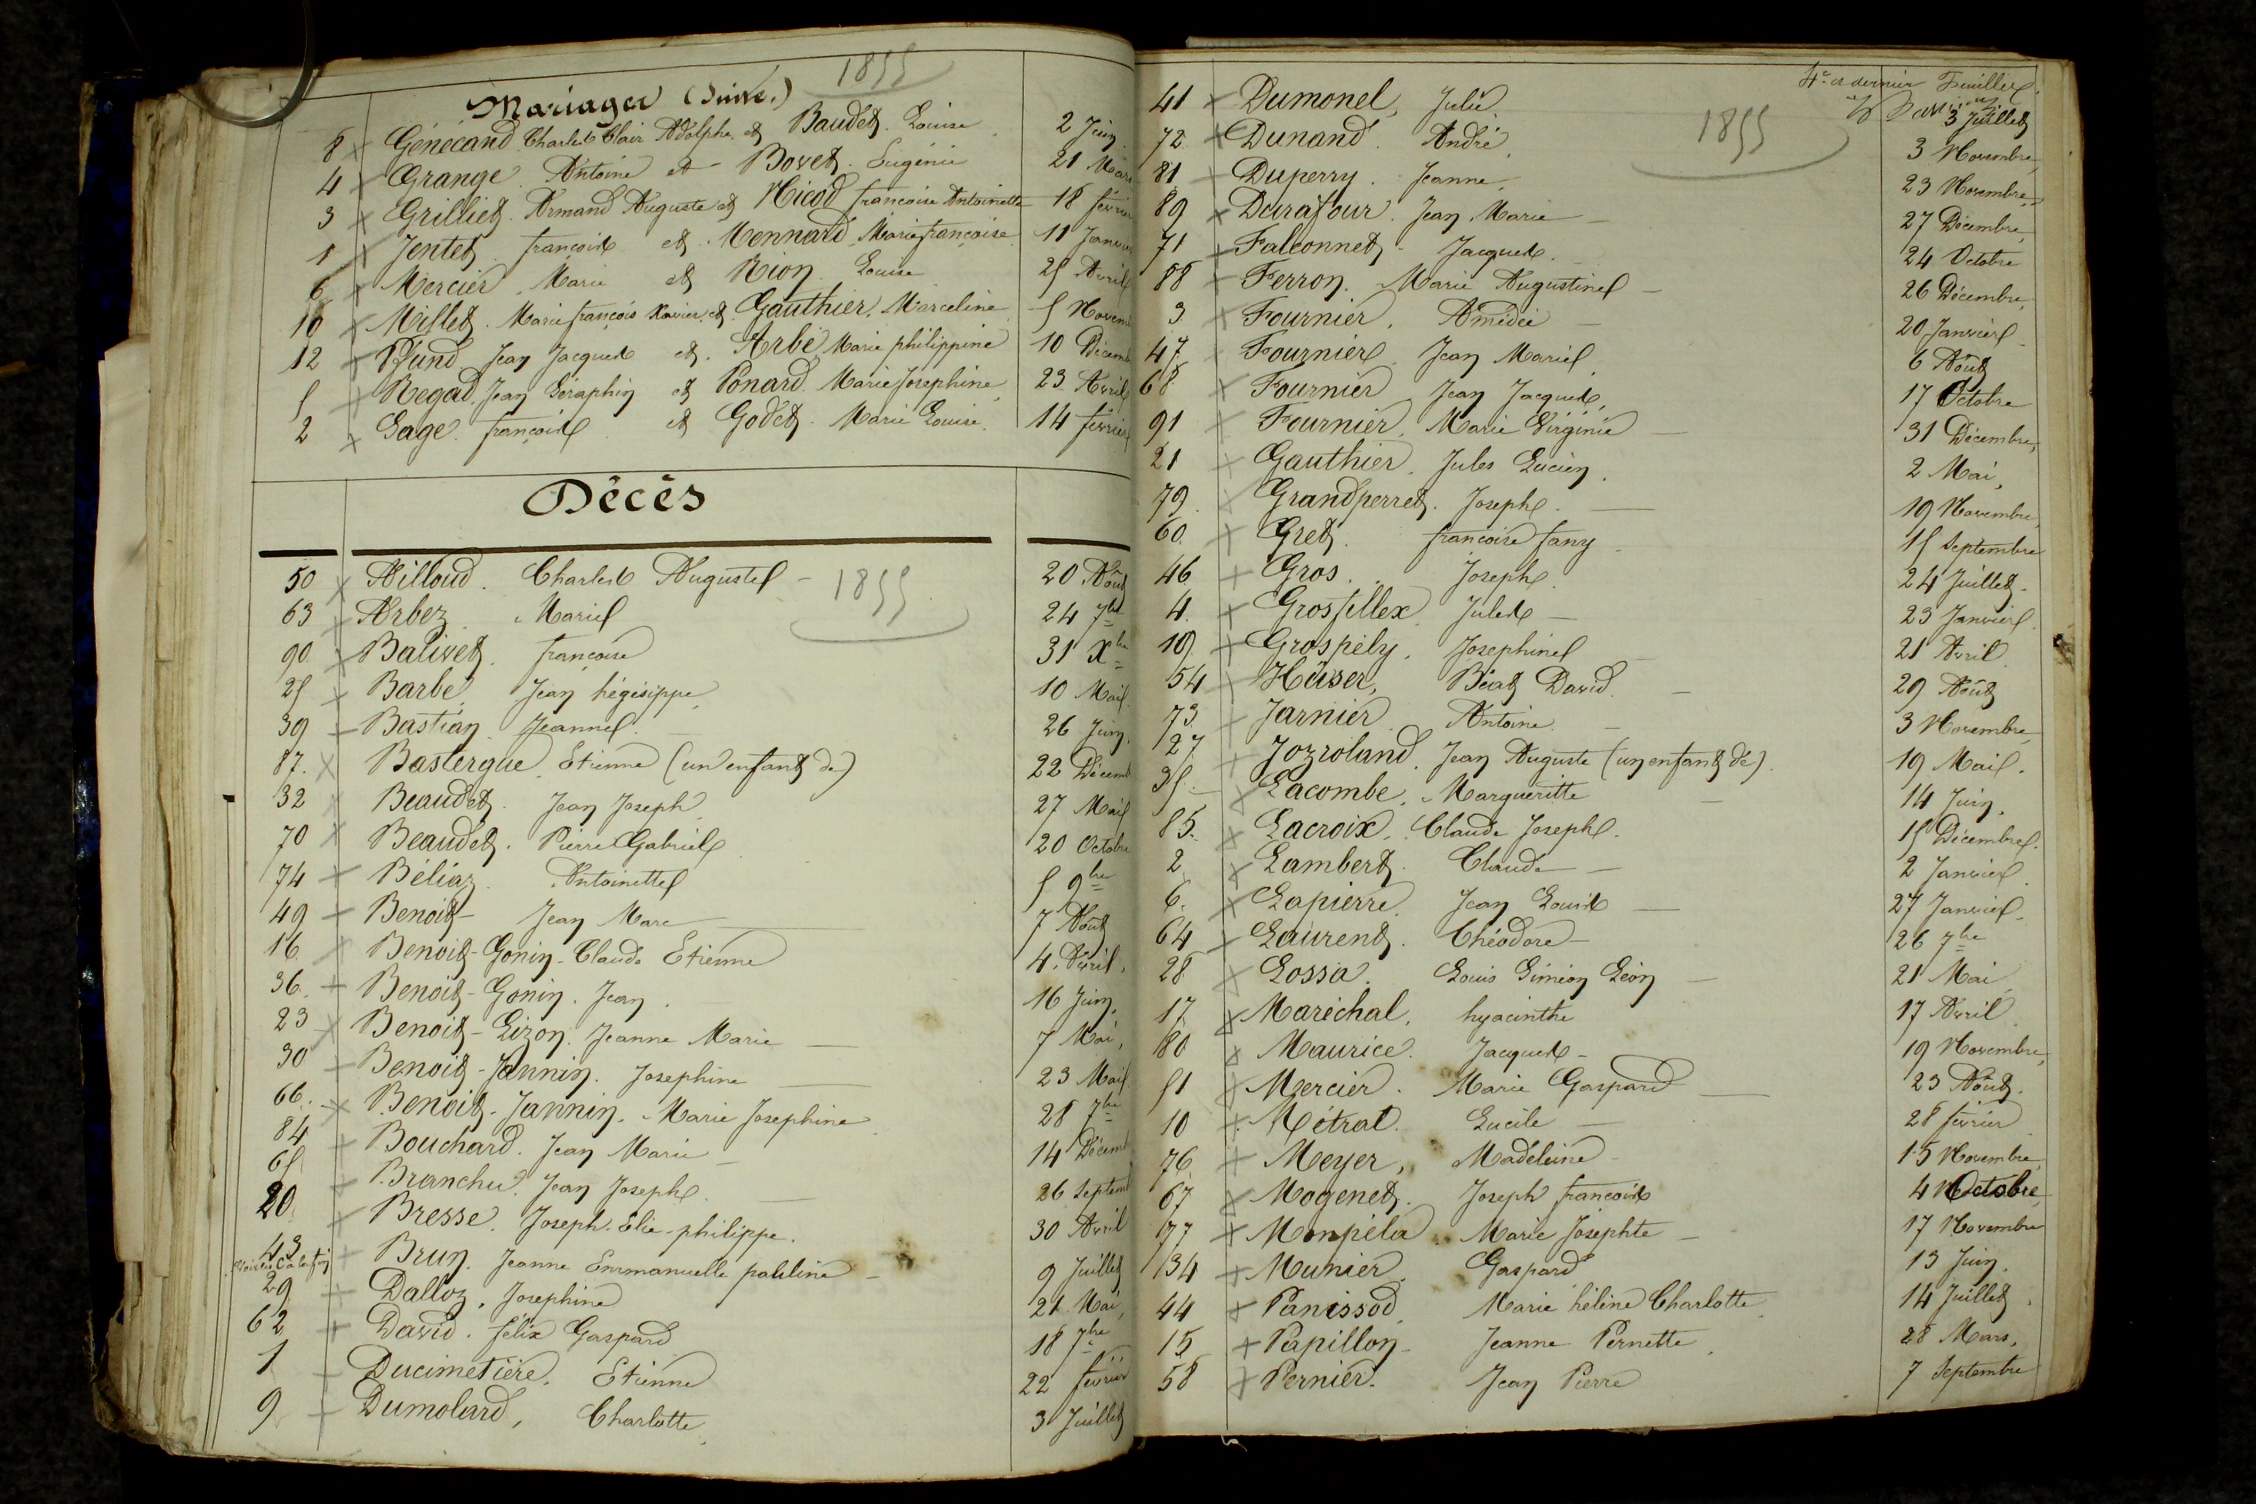 1855
Mariages (Suite.)
8 Génécand Charles Clair Adolphe et Baudet Louise 2 Juin
4 Grange Antoine et Bovet Eugénie 21 Mars
3 Grilliet Armand Auguste et Nicod françoise Antoinette 18 février
1 Jentet françois et Mennard Marie françoise 11 Janvier
6 Mercier Marie et Rion Louise 25 Avril
10 Millet Marie françois Xavier et Gauthier Marceline 5 Novem
12 Pfund Jean Jacques et Arbé Marie philippine 10 Décemb
5 Regad Jean Séraphin et Ponard Marie Josephine 23 Avril
2 Sage françois et Godet Marie Louise 14 février
Décès
1855
50 Ailloud Charles Auguste 20 Août
63 Arbez Marie 24 7bre
90 Balivet françoise 31 Xbre
25 Barbe Jean hégésippe 10 Mai
39 Bastian Jeanne 26 Juin
87 Bastergue Etienne (un enfant de) 22 Décemb
32 Beaudet Jean Joseph 27 Mai
70 Beaudet Pierre Gabriel 20 Octobre
74 Béliaz Antoinette 5 9bre
49 Benoit Jean Marc 7 Août
16 Benoit-Gonin Claude Etienne 4 Avril
36 Benoit-Gonin Jean 16 Juin
23 Benoit-Lizon Jeanne Marie 7 Mai
30 Benoit-Jannin Josephine 23 Mai
66 Benoit-Jannin Marie Josephine 28 7bre
84 Bouchard Jean Marie 14 Décemb
65 Branchu Jean Joseph 26 Septemb
20 Bresse Joseph Elie philippe 30 Avril
43 Brun Jeanne Emmanuelle pauline 9 Juillet
29 Dalloz Josephine 21 Mai
62 David félix Gaspard 18 7bre
1 Ducimetière Etienne 22 février
9 Dumolard Charlotte 3 Juillet
4e et dernier Feuillet
1855
41 Dumonel Julie 3 Juillet
72 Dunand André 3 Novembre
81 Duperry Jeanne 23 Novembre
89 Durafour Jean Marie 27 Décembre
71 Falconnet Jacques 24 Octobre
88 Ferron Marie Augustine 26 Décembre
3 Fournier Amédée 20 Janvier
47 Fournier Jean Marie 6 Août
68 Fournier Jean Jacques 17 Octobre
91 Fournier Marie Virginie 31 Décembre
21 Gauthier Jules Lucien 2 Mai
79 Grandperret Joseph 19 Novembre
60 Gret françoise fany 15 Septembre
46 Gros Joseph 24 Juillet
4 Grosfillex Jules 23 Janvier
19 Grospély Josephine 21 Avril
54 Häuser Béat David 29 Août
73 Jarnier Antoine 3 Novembre
27 Jozroland Jean Auguste (un enfant de) 19 Mai
35 Lacombe Margueritte 14 Juin
85 Lacroix Claude Joseph 15 Décembre
2 Lambert Claude 2 Janvier
6 Lapierre Jean Louis 27 Janvier
64 Laurent Théodore 26 7bre
28 Lossa Louis Siméon Léon 21 Mai
17 Maréchal hyacinthe 17 Avril
80 Maurice Jacques 19 Novembre
51 Mercier Marie Gaspard 23 Août
10 Métral Lucile 28 février
76 Meyer Madeleine 15 Novembre
67 Mogenet Joseph françois 4 Octobre
77 Monpéla Marie Josephte 17 Novembre
34 Munier Gaspard 13 Juin
44 Panissod Marie hélène Charlotte 14 Juillet
15 Papillon Jeanne Pernette 28 Mars
58 Pernier Jean Pierre 7 Septembre